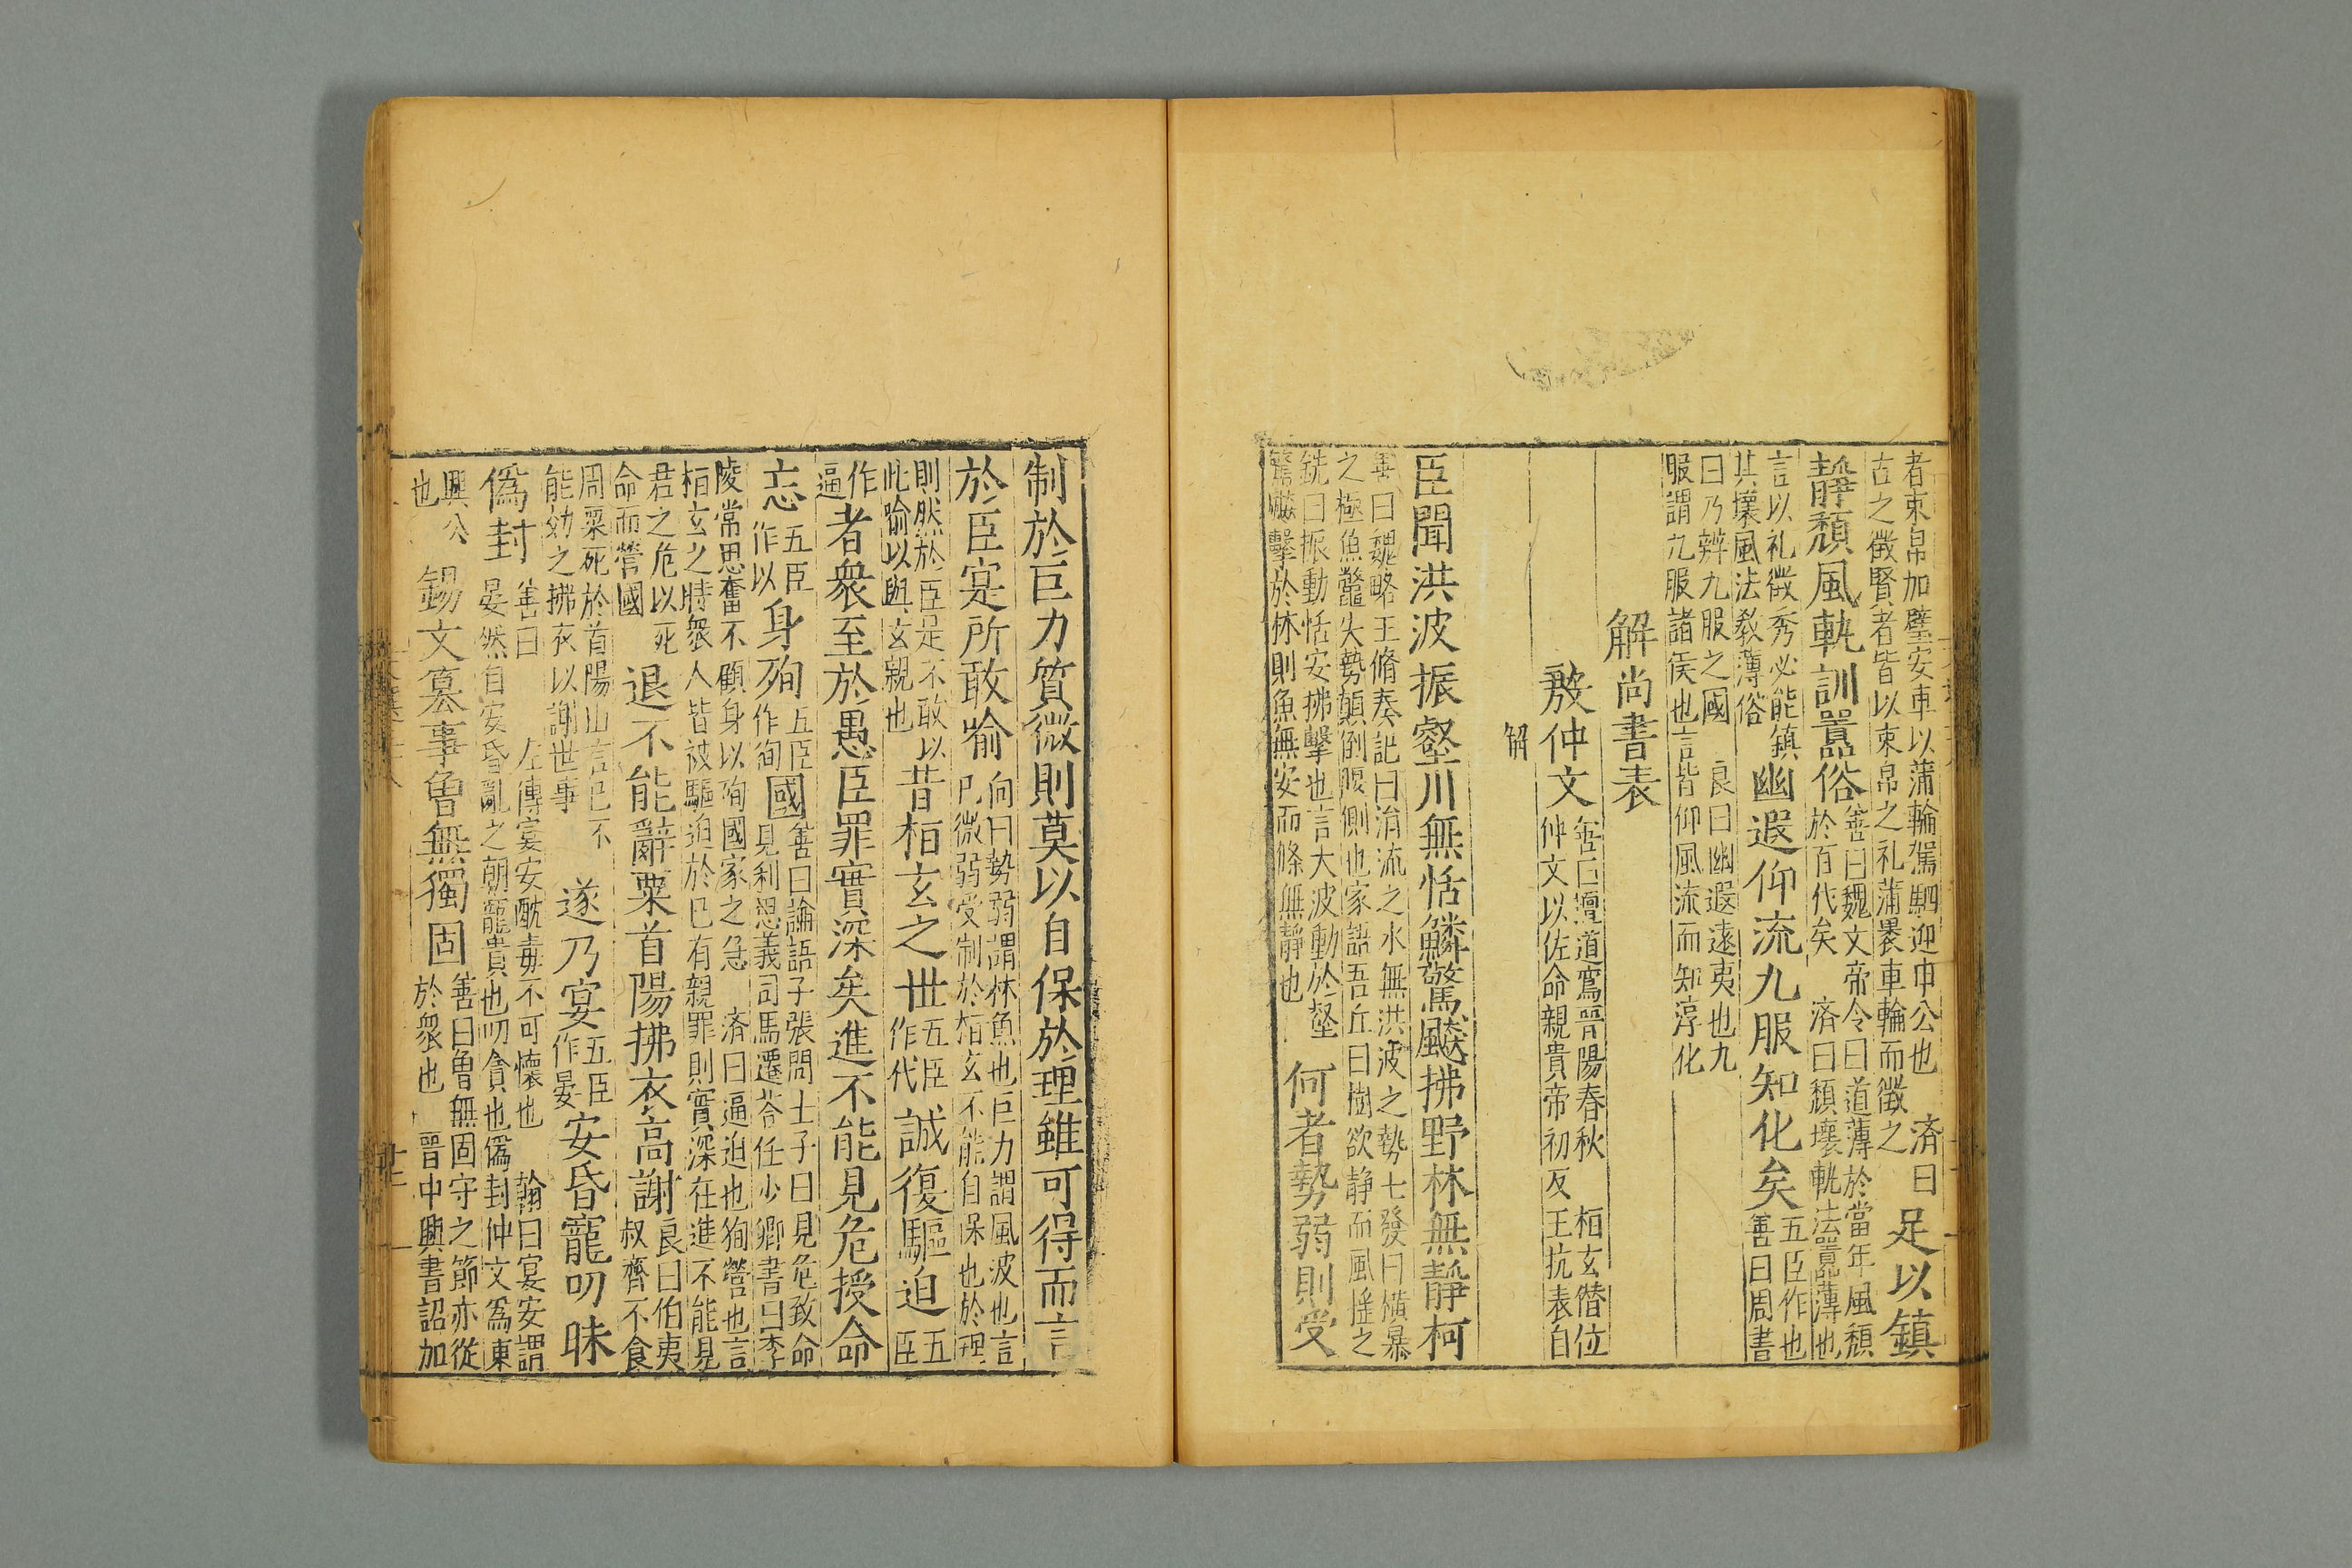 者束帛加璧安車以蒲輪駕駟迎申公也　濟曰
古之徵賢者皆以束帛之礼蒲褁車輪而徵之
足以鎮
靜頹風軌訓囂俗
善曰魏文帝令曰道薄於當年風頹
於百代矣　濟曰頹壞軌法囂薄也
言以礼徵秀必能鎮
其壞風法教薄俗
幽遐仰流九服知化矣
五臣作也
善曰周書
曰乃辨九服之國　良曰幽遐遠夷也九
服謂九服諸侯也言皆仰風流而知淳化
解尚書表
殷仲文
善曰檀道鸞晉陽春秋　桓玄僭位
仲文以佐命親貴帝初反　王抗表自
解
臣聞洪波振壑川無恬鱗驚飈拂野林無靜柯
善曰魏略王脩奏記曰涓流之水無洪波之勢七發曰橫暴
之極魚鼈失勢顛倒腹側也家語吾丘曰樹欲静而風揺之
銑曰振動恬安拂擊也言大波動於壑
驚飈擊於林則魚無安而條無靜也
何者勢弱則受
制於巨力質微則莫以自保於理雖可得而言
於臣寔所敢喻
向曰勢弱謂林魚也巨力謂風波也言
巳微弱受制於桓玄不能自保也於理
則然於臣足不敢以
此喻以與玄親也
昔桓玄之世
五臣
作代
誠復驅迫
五
臣
作
逼
者衆至於愚臣罪實深矣進不能見危授命
忘
五臣
作以
身殉
五臣
作徇
國
善曰論語子張問士子曰見危致命
見利思義司馬遷荅任少卿書曰李
陵常思奮不顧身以殉國家之急　濟曰逼迫也狥營也言
桓玄之時衆人皆被驅迫於巳有親罪則實深在進不能見
君之危以死
命而營國
退不能辭粟首陽拂衣高謝
良曰伯夷
叔齊不食
周粟死於首陽山言巳不
能効之拂衣以謝世事
遂乃宴
五臣
作晏
安昏寵叨昧
偽封
善曰　左傳宴安酖毒不可懷也　翰曰宴安謂
晏然自安昏亂之朝寵貴也叨貪也偽封仲文爲東
興公
也
錫文篡事魯無獨固
善曰魯無固守之節亦從
於衆也　晉中興書詔加